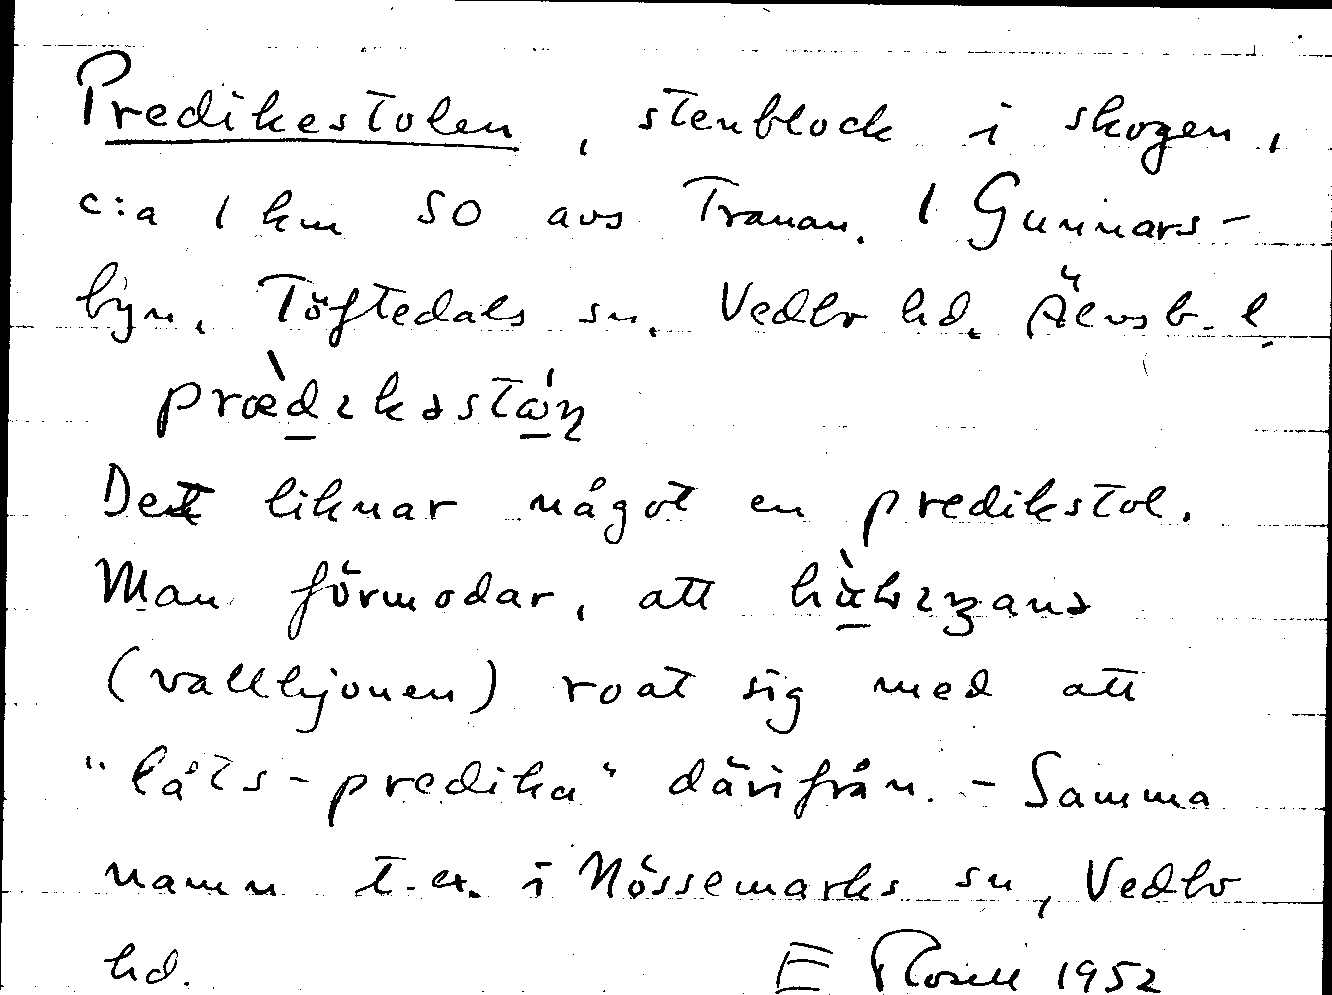 Predikestolen, stenblock i skogen,
c:a 1 km SO avs Tranan. I Gunnars-
byn, Töftedals sn, Vedbo hd. Älvsb. l.
Det liknar något en predikstol.
Man förmodar, att
(vallhjonen) roat sig med att
"låts-predika" därifrån. - Samma
namn t.ex. i Nössemarks sn, Vedbo
hd. E Rosell 1952